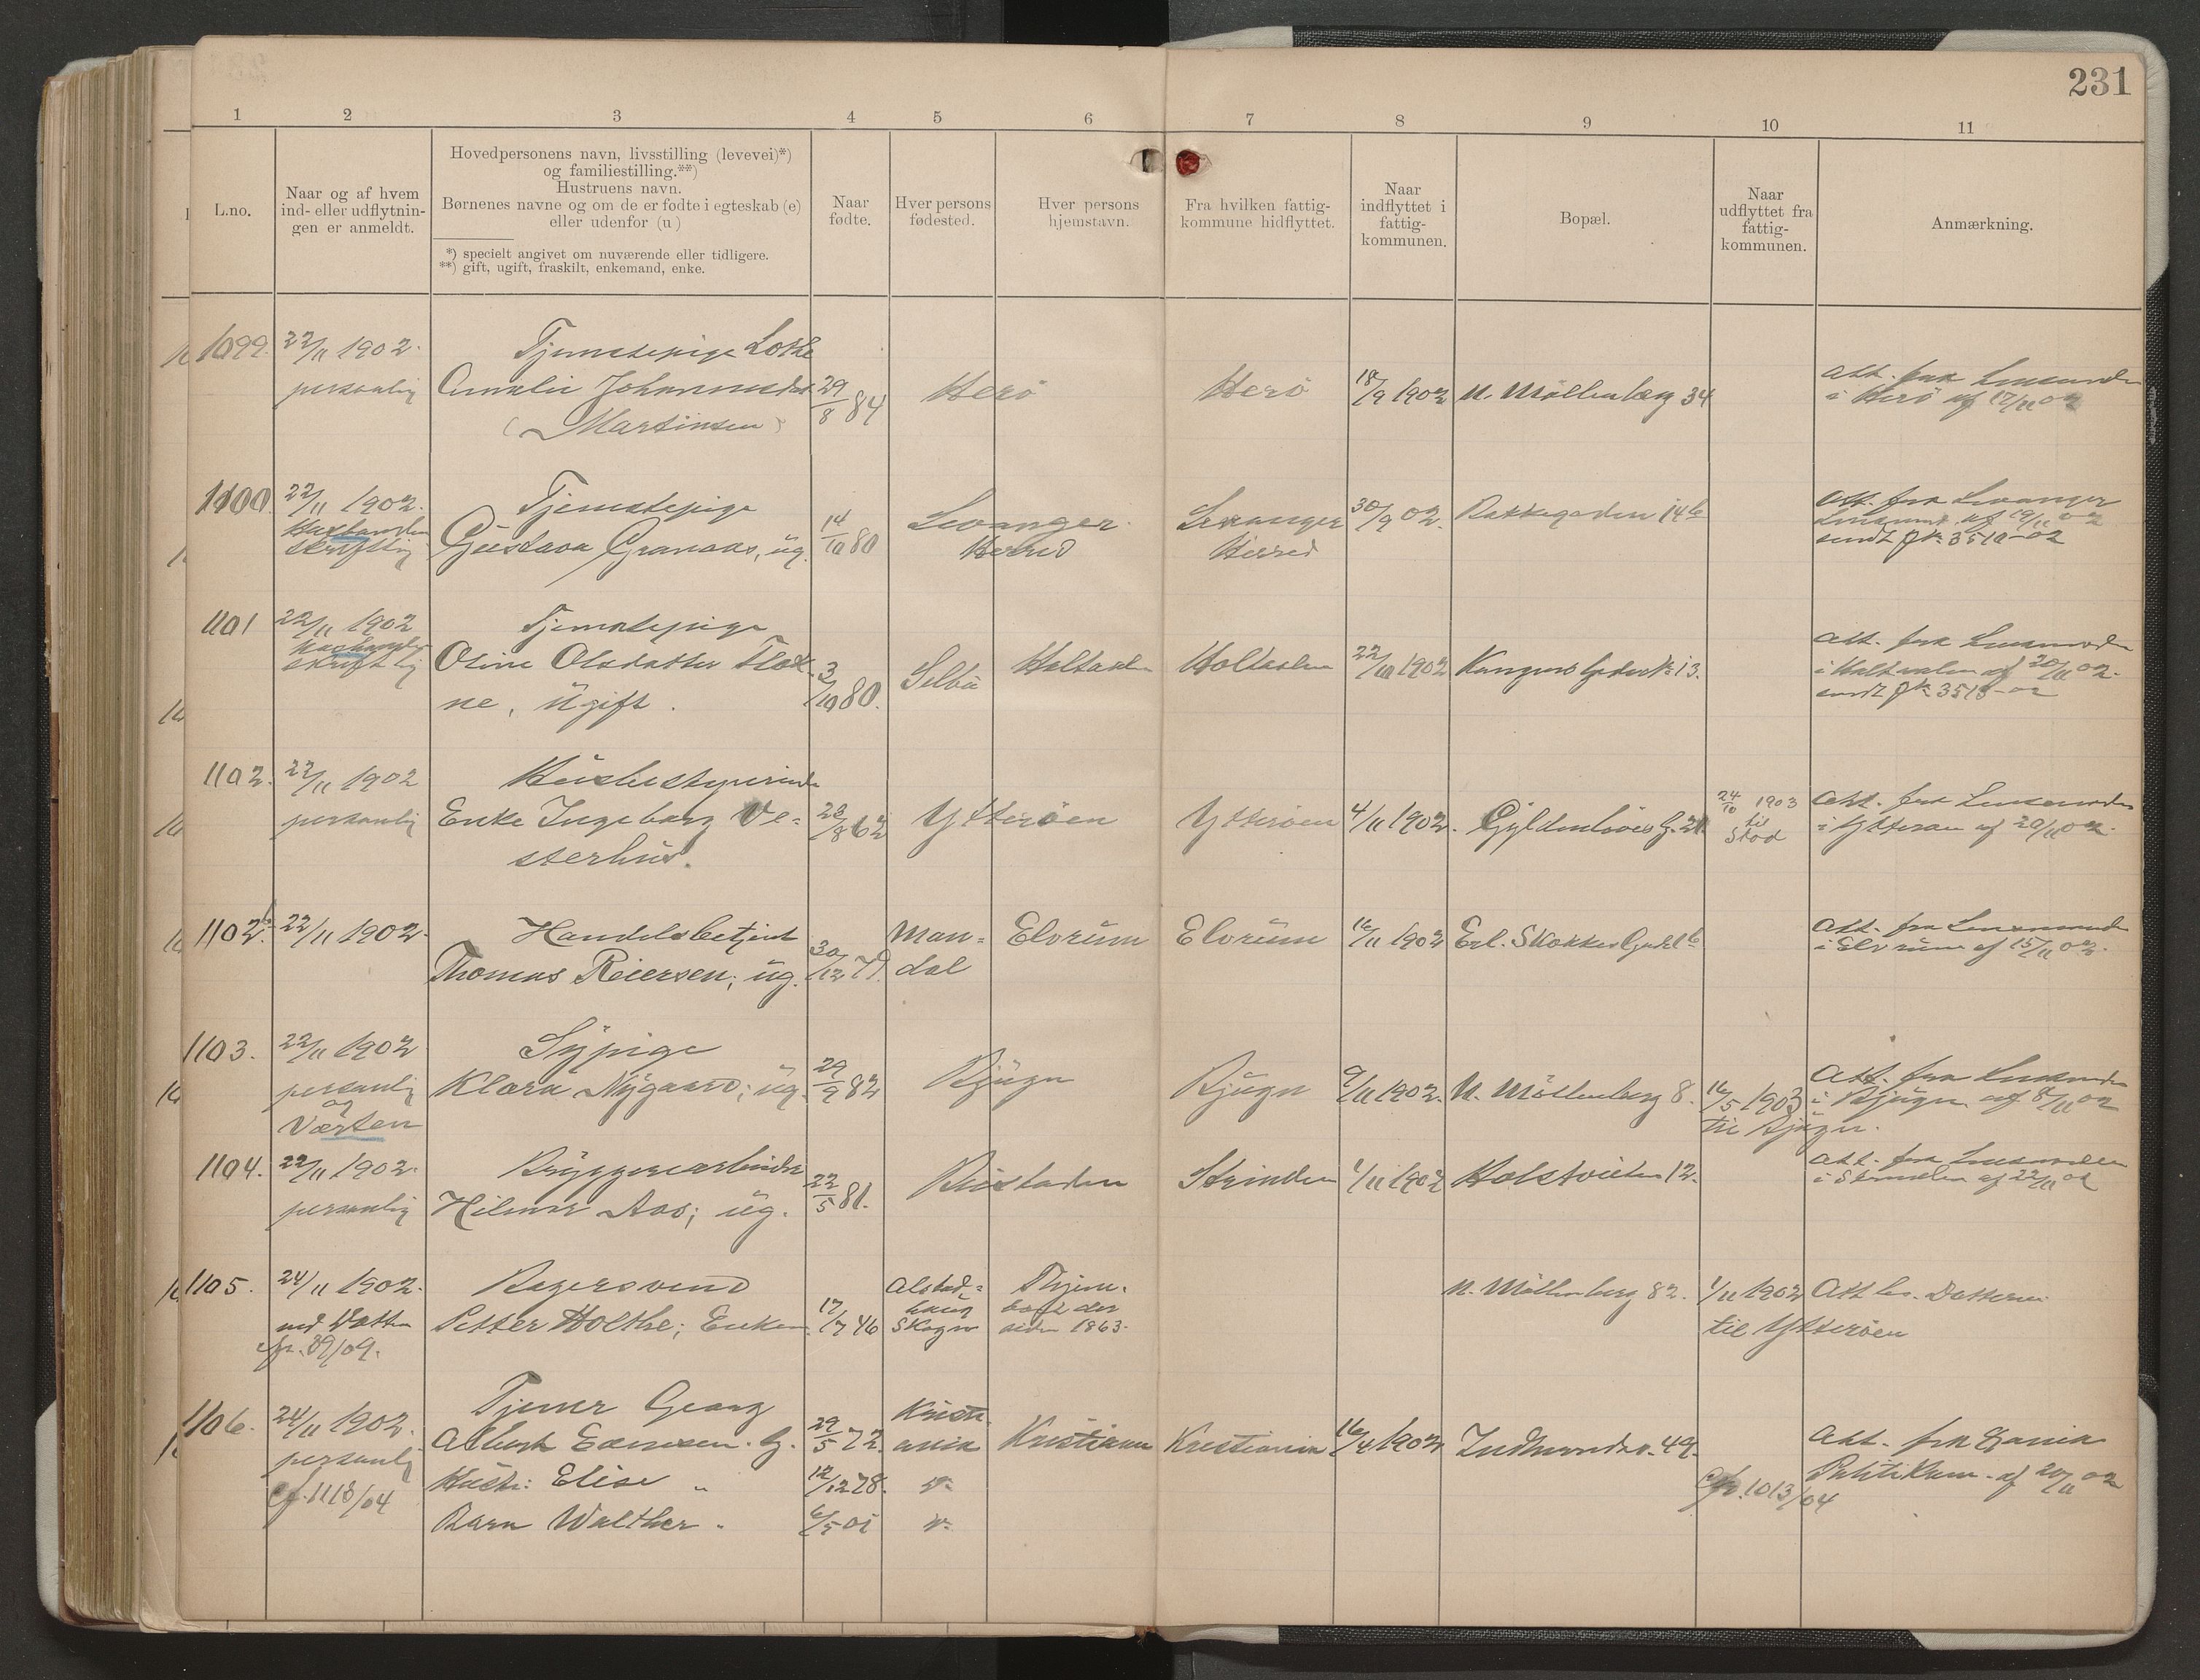 231
1 2 3 4 5 6 7 8 9 10 11
L.no.
Naar og af hvem
ind- eller udflytnin-
gen er anmeldt.
Hovedpersonens navn, livsstilling (levevei)*)
og familiestilling.**)
Hustruens navn.
Børnenes navne og om de er fødte i egteskab (e)
eller udenfor (u)
*) specielt angivet om nuværende eller tidligere.
**) gift, ugift, fraskilt, enkemand, enke.
Naar
fødte.
Hver persons
fødested.
Hver persons
hjemstavn.
Fra hvilken fattig-
kommune hidflyttet.
Naar
indflyttet i
fattig-
kommunen.
Bopæl.
Naar
udflyttet fra
fattig-
kommunen.
Anmærkning.
1099. 22/11 1902. Tjenestepige Lothe
personlig Amalie Johannesdat 29/8 84 Herö Herö 18/9 1902 N. Möllenberg 34 Att. fra Lensmanden
(Martinsen) i Herö af 17/11 02
1100 22/11 1902. Tjenestepige Att. fra Levanger
Husbonden Levanger Levanger 30/9 02. Bakkegaden 14b
skriftlig Gustava Granaas, ug. 14/10 80 Herred Herred sendt 3510-02
1101 22/11 1902 Tjenestepige
Husbonden
skriftlig Oline Olsdatter Flot- 3/10 80. Selbu Holtaalen Holtaalen 22/10 1902 Kongens Gade 13. Att. fra Lensmanden
ne, ugift. i Holtaalen af 20/11 02.
sendt 3513-02
1102. 22/11 1902 Husbestyrerinde
personlig Enke Ingeborg Ve- 23/8 62 Ytteröen Ytteröen 4/11 1902. Gyldenlöves G. 21 24/10 1903 Att. fra Lensmanden
sterhus. til Stod i Ytteröen af 20/11 02.
1102b. 22/11 1902. Handelsbetjent Man- Elvrum Elvrum 16/11 1902 Erl. Skakkes Att. fra Lensmanden
Thomas Reiersen; ug. 30/12 79. dal i Elvrum af 15/11 02.
1103. 22/11 1902 Sypige
personlig Klara Nygaard; ug. 29/9 82 Bjugn Bjugn 9/11 1902. N. Möllenberg 8. 16/5 1903 Att. fra Lensmanden
og til Bjugn. i Bjugn af 8/11 02
Værten
1104. 22/11 1902. Byggearbeider
personlig Hilmar Aas; ug. 22/5 81. Börstaden Strinden 1/11 1902 Holstveiten 12. Att. fra Lensmanden
i Strinden af 22/11 02
1105. 24/11 1902. Bagersvend Alstad- Thjem. N. Möllenberg 82. 1/11 1902 Att. Datteren
ved Datter Petter Holthe; Enkem. 17/7 46 haug
cfr. 39/09. Skogn siden 1863. til Ytteröen
1106. 24/11 1902. Tjener Georg Kristi-
personlig Albert Edensen. g. 29/5 72. ania Kristiania Kristiania 16/4 1902 Indherredsv. 49. Att. fra Xania
cf. 1113/04 Hustr: Elise " 12/12 78. " cfr. 1013/04 Politikam. af 20/11 02
Barn Walther " 6/5 01 "